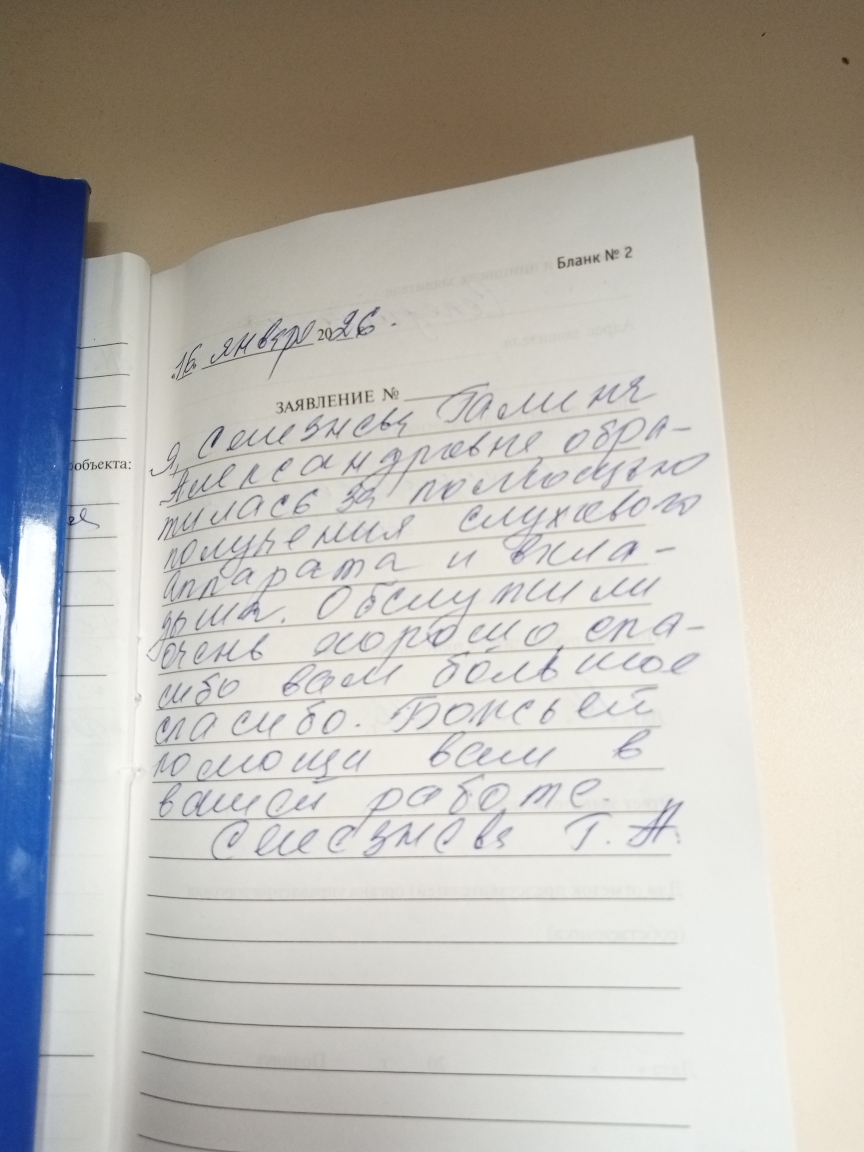 Бланк № 2
16 январ 2026.
ЗАЯВЛЕНИЕ №
объекта:
Я, Селезнева Галина
Александровна обра-
тилась за помощью
получения слухового
аппарата и вкла-
дыша. Обслужили
очень хорошо, спа-
сибо вам большое
спасибо. Божьей
помощи вам в
вашей работе.
Селезнева Г. А.